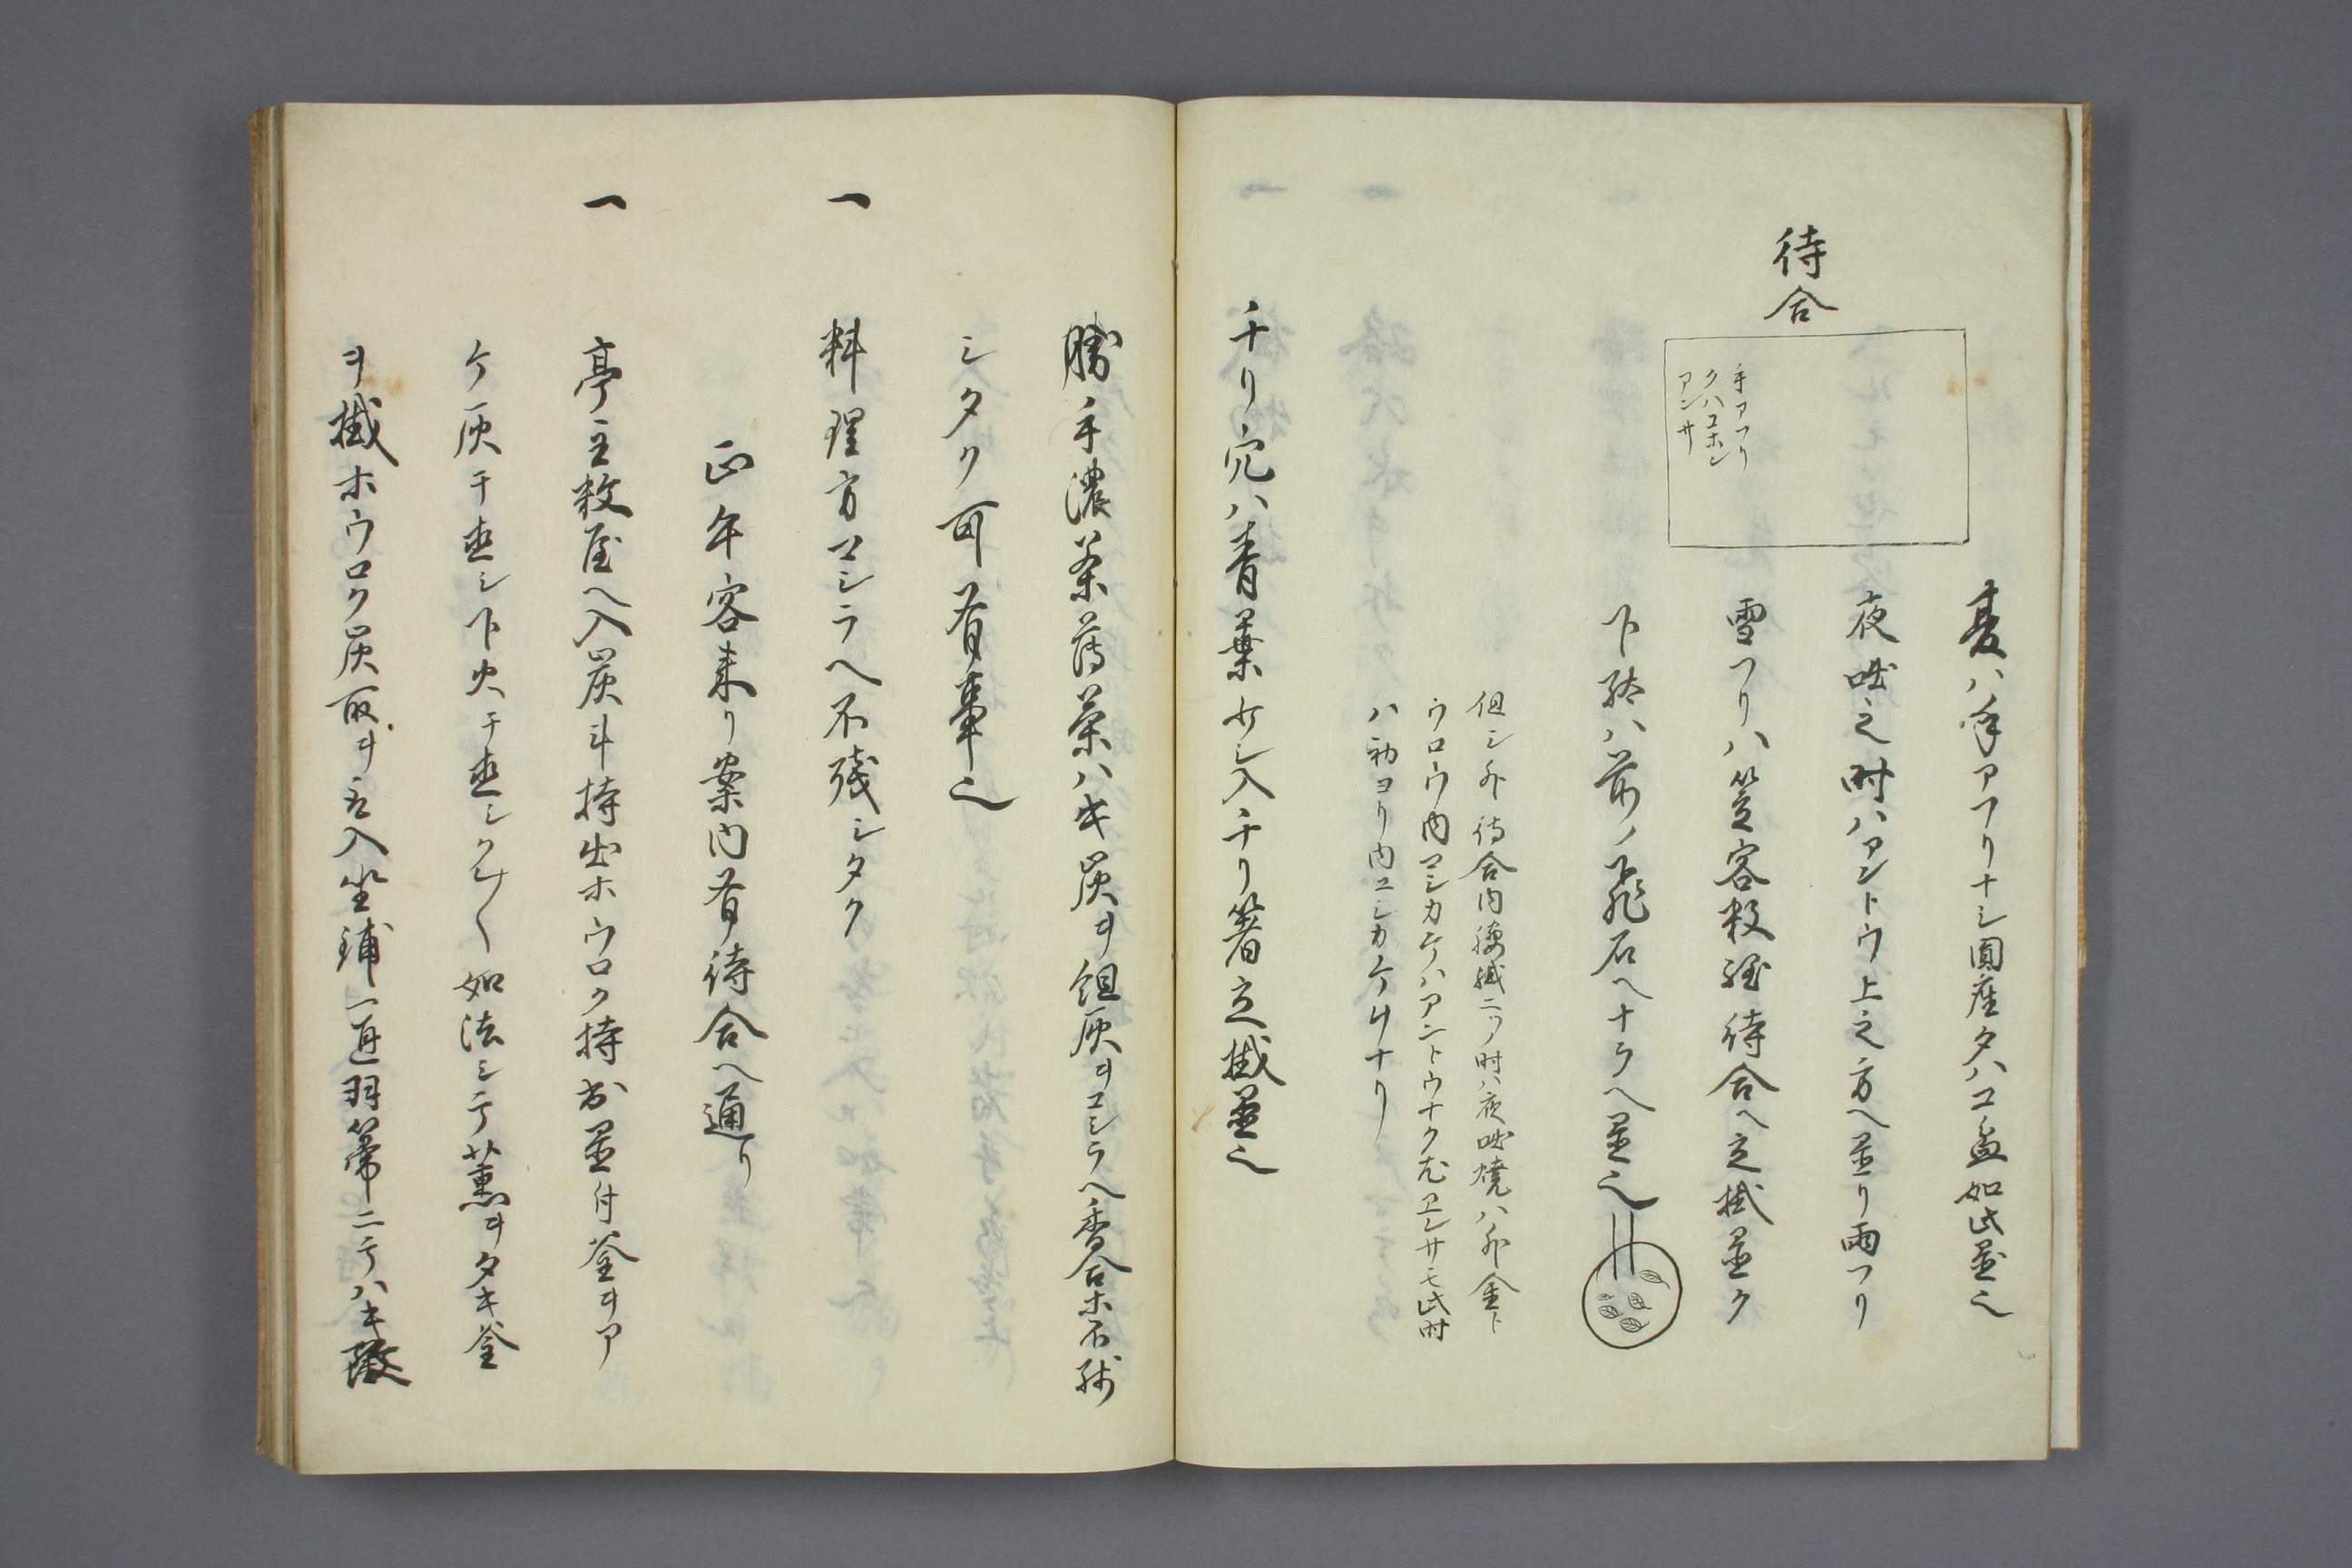 待合
手アフリ
タハコホン
アンサ
夏ハ手アフリナシ圓座タハコ盆如此置之
夜咄之時ハアントウ上之方ヘ置リ雨フリ
雪フリハ笠客数程待合ヘ立掛置ク
下駄ハ前ノ飛石ヘナラヘ置之
但シ外待合内腰掛二ツノ時ハ夜咄焼ハ外金ト
ウロウ内コシカケハアントウナク尤エンサモ此時
ハ初ヨリ内コシカケナリ
チリ穴ハ青葉少シ入チリ箸立掛置之
勝手濃茶薄茶ハキ炭ヲ組灰ヲコシラヘ香合ホ不残
シタク可有事之
一 料理方コシラヘ不残シタク
正午客来リ案内有待合ヘ通リ
一 亭主数屋ヘ入炭斗持出ホウロク持出置付釜ヲア
ケ灰ヲ直シ下火ヲ直シ如法シテ薫ヲタキ釜
ヲ掛ホウロク炭取ヲ入坐鋪一通羽箒ニテハキ